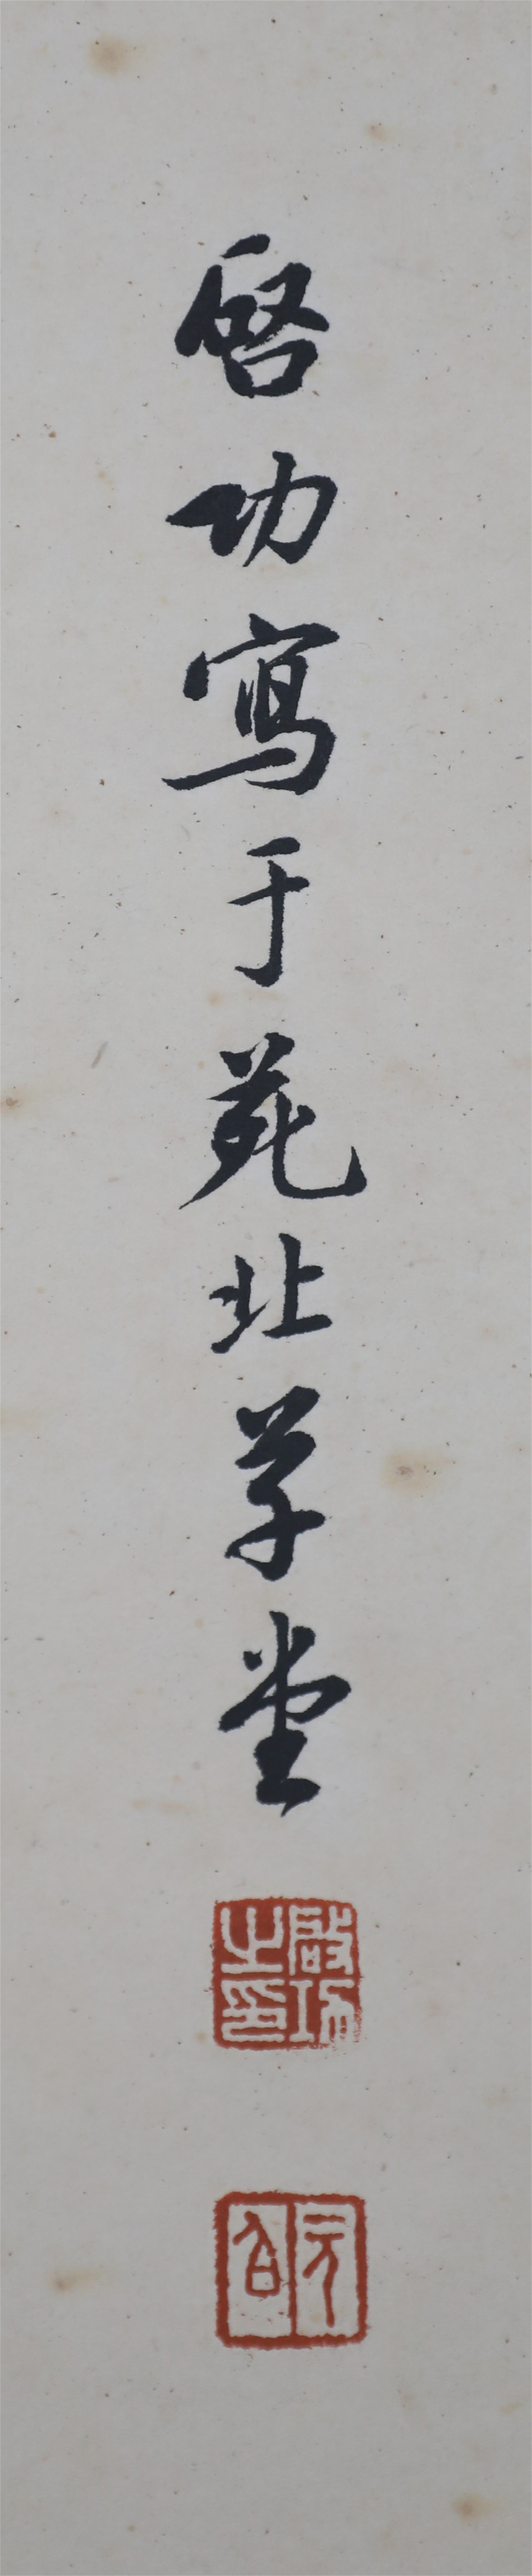 啓功寫于苑北草堂
啟功之印
元白